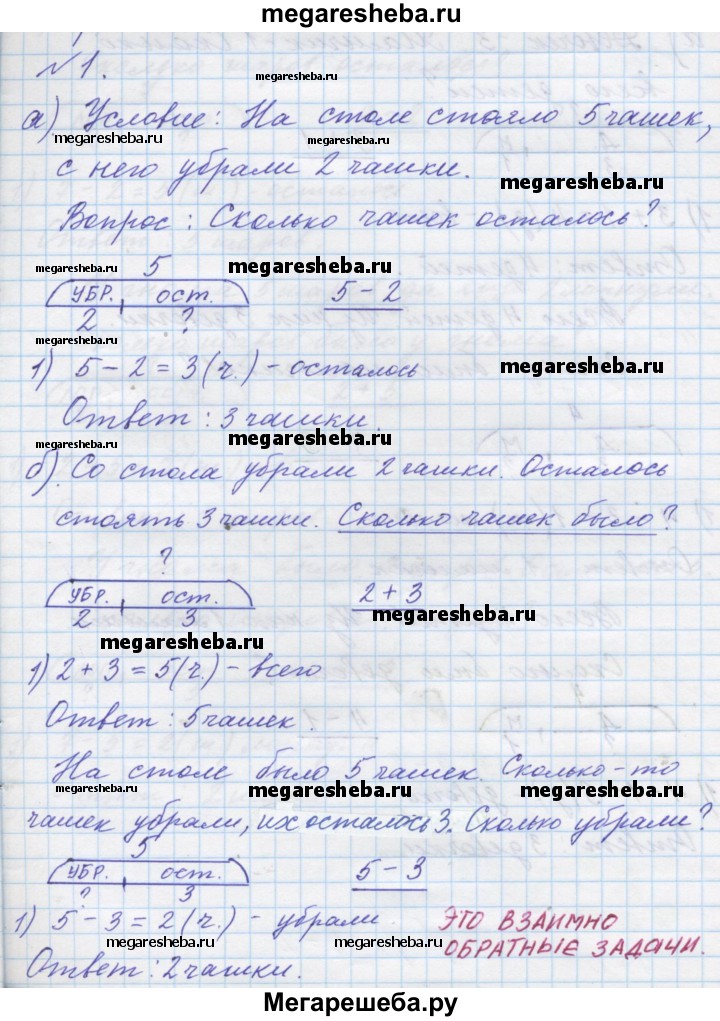 megaresheba.ru
№1.
megaresheba.ru
а) Условие: На столе стояло 5 чашек,
megaresheba.ru
megaresheba.ru
с него убрали 2 чашки.
megaresheba.ru
Вопрос: Сколько чашек осталось?
5
megaresheba.ru
megaresheba.ru
УБР. ОСТ. 5 - 2
2 ?
megaresheba.ru
1) 5 - 2 = 3 (ч.) - осталось
megaresheba.ru
Ответ: 3 чашки.
megaresheba.ru
megaresheba.ru
б). Со стола убрали 2 чашки. Осталось
стоять 3 чашки. Сколько чашек было?
?
УБР. ОСТ. 2 + 3
2 3
megaresheba.ru
megaresheba.ru
1) 2 + 3 = 5 (ч.) - всего
Ответ: 5 чашек.
На столе было 5 чашек. Сколько-то
megaresheba.ru
megaresheba.ru
megaresheba.ru
чашек убрали, их осталось 3. Сколько убрали?
5
УБР. ОСТ. 5 - 3
? 3
1) 5 - 3 = 2 (ч.) - убрали.
ЭТО ВЗАИМНО
ОБРАТНЫЕ ЗАДАЧИ.
megaresheba.ru
megaresheba.ru
Ответ: 2 чашки.
Мегарешеба.ру